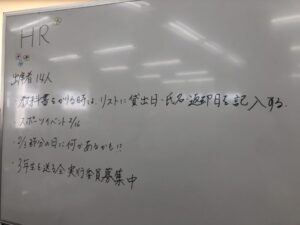 HR
出席者 14人
・教科書をかりる時は、リストに貸出日・氏名 返却日を記入する。
・スポーツイベント 2/16
・2/3 節分の日に何かあるかも!?
・3年生を送る会 実行委員募集中